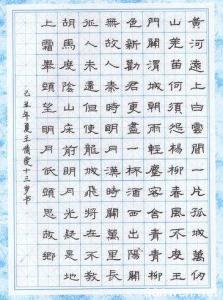 黄河遠上白雲間一片孤城萬仞
山羌笛何須怨楊柳春風不度玉
門關渭城朝雨浥輕塵客舍青青柳
色新勸君更盡一杯酒西出陽關
無故人秦時明月漢時關萬里長
征人未還但使龍城飛將在不教
胡馬度陰山床前明月光疑是地
上霜舉頭望明月低頭思故鄉
己丑年夏王倩雯十三岁书